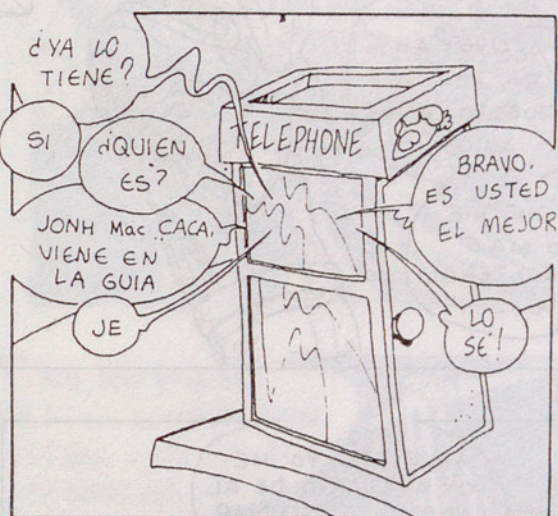 ¿YA LO
TIENE?
SI
¿QUIEN
ES?
JONH Mac CACA.
VIENE EN
LA GUIA
JE
TELEPHONE
BRAVO.
ES USTED
EL MEJOR
LO
SÉ!